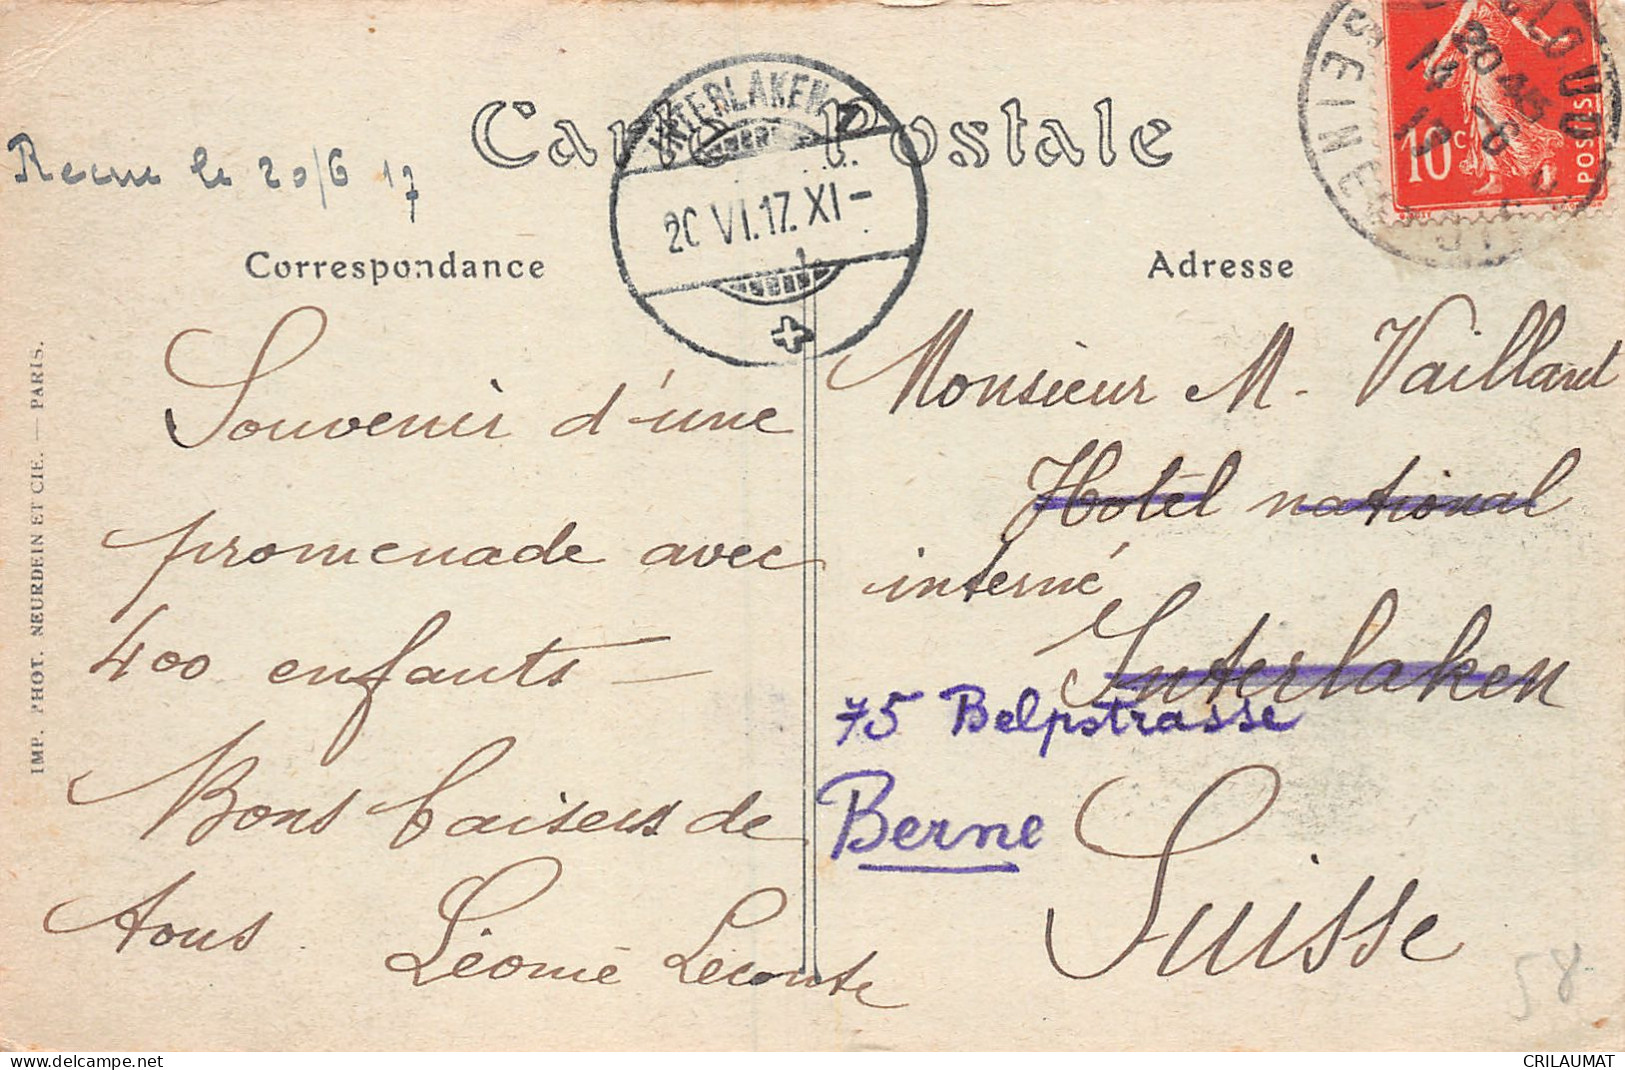 Carte Postale
Recue le 20/6 17
INTERLAKEN
20.VI.17.XI-
CLOUD
SEINE
10c
POSTES
Correspondance
Adresse
Souvenir d'une
promenade avec
400 enfants —
Bons baisers de
tous
Léonie Leconte
Monsieur M. Vaillant
Hotel national
interné
Interlaken
75 Belpstrasse
Berne
Suisse
58
IMP. PHOT. NEURDEIN ET CIE. — PARIS.
delcampe.net
CRILAUMAT